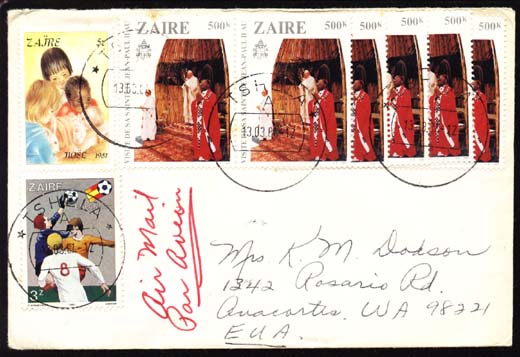 ZAÏRE
NOËL 1981
ZAIRE 500K
VISITE DE SA SAINTETE JEAN-PAUL II AU
ZAIRE 500K
VISITE DE SA SAINTETE JEAN-PAUL II AU
500K
500K
500K
500K
TSHELA
A
13.03.8
TSHELA
A
13.03.8
ZAIRE
8
3Z
TSHELA
A
Air Mail
Par Avion
Mrs K. M. Dodson
1342 Rosario Rd.
Anacortes, WA 98221
EUA.